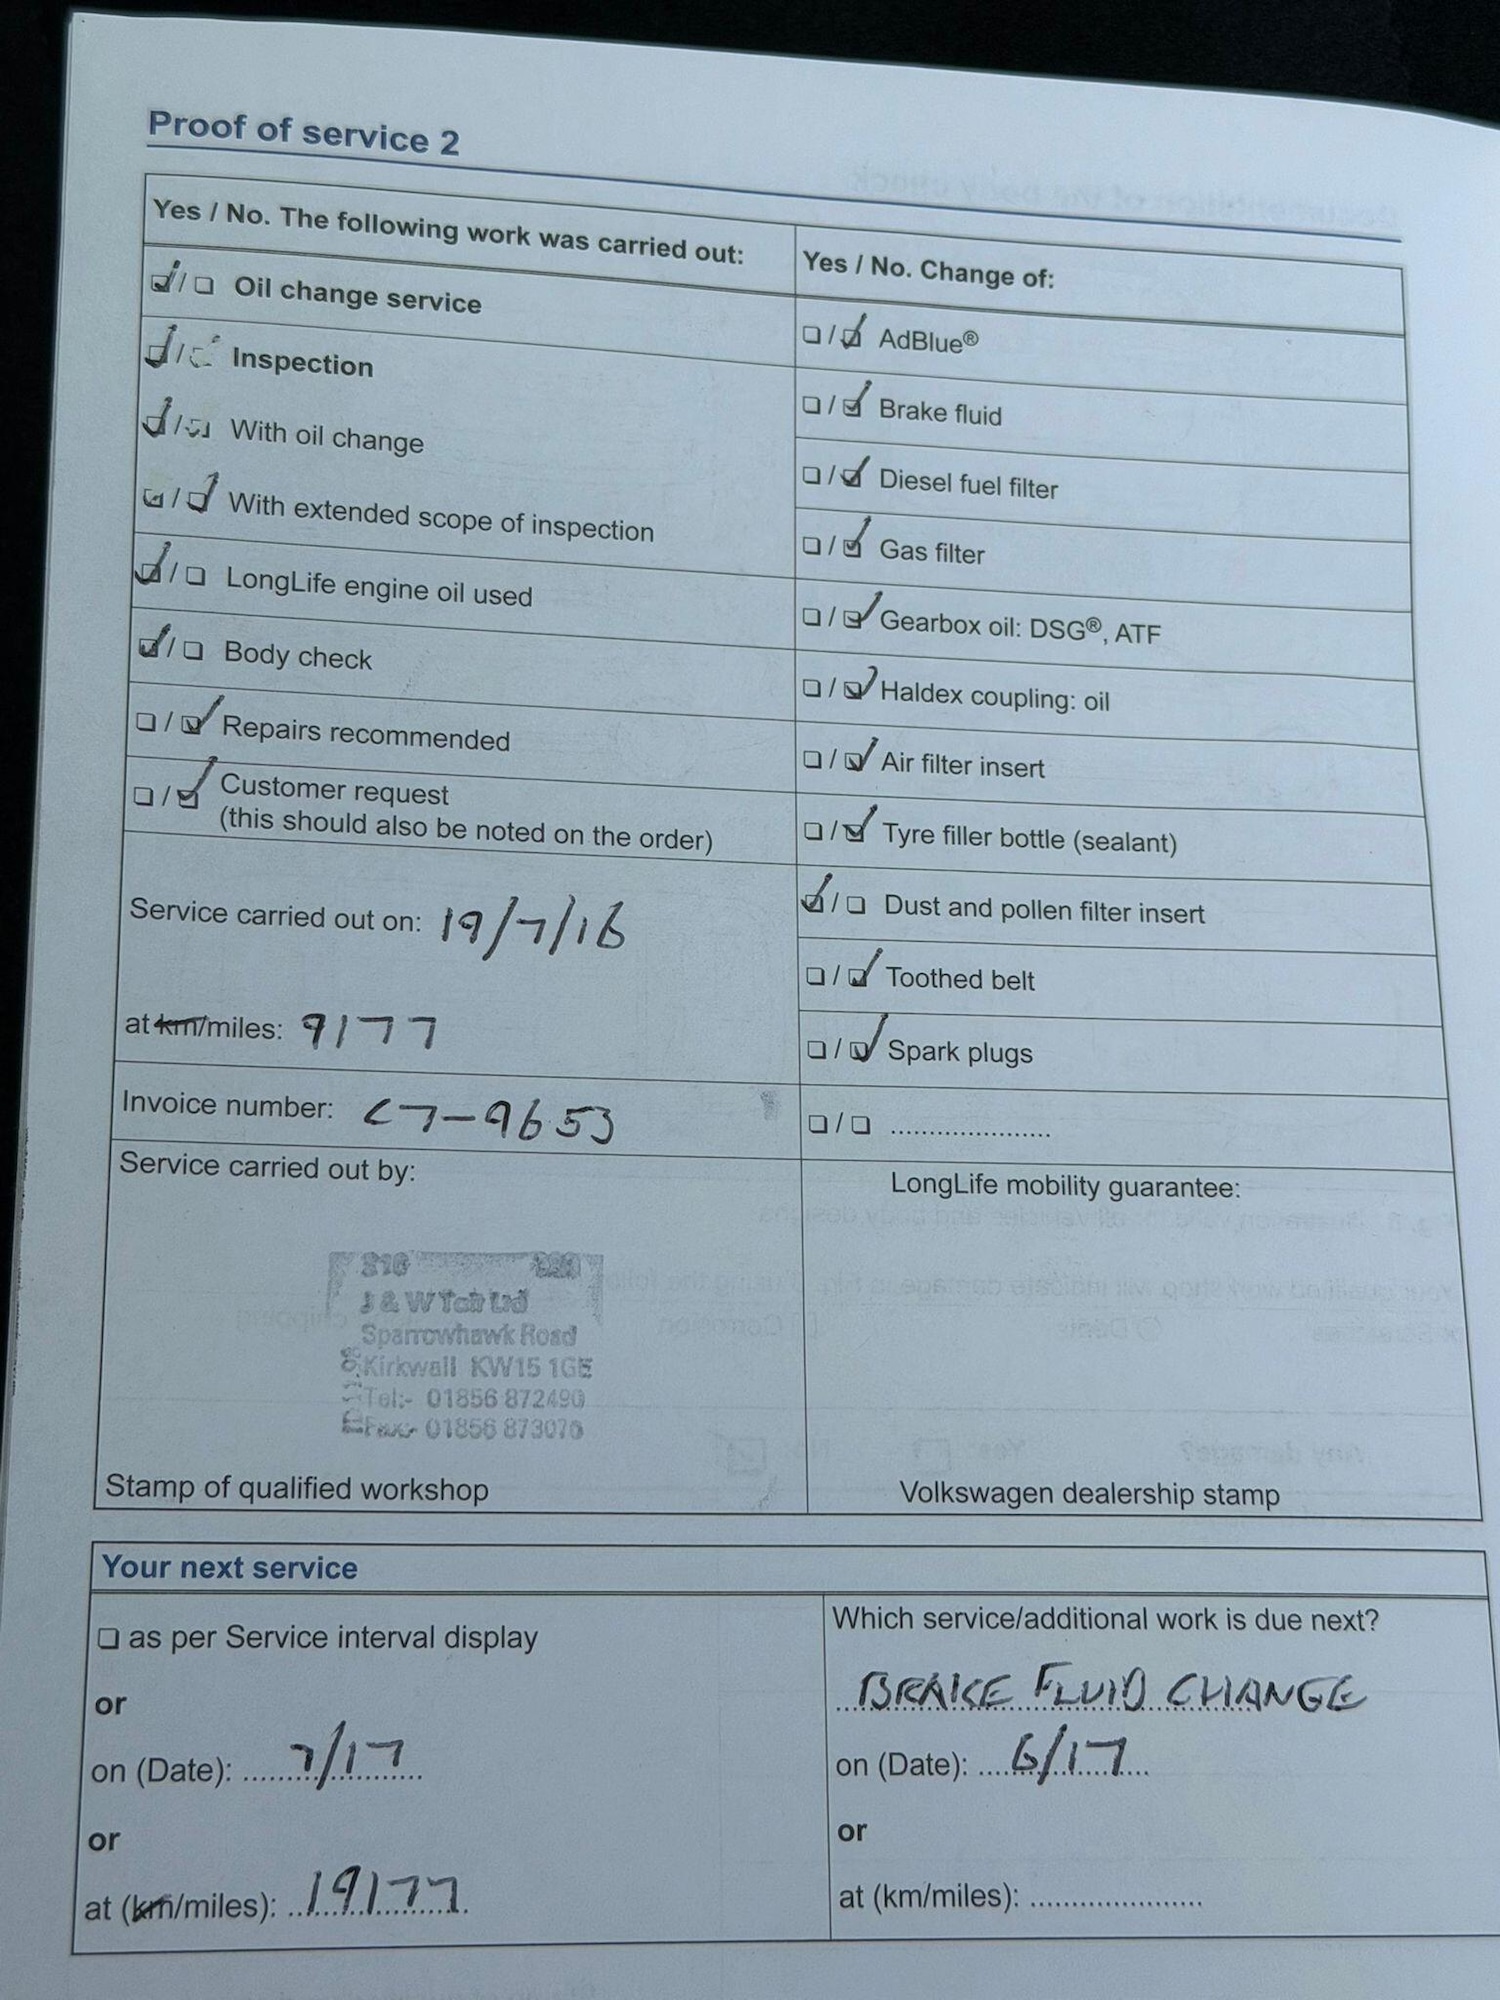 Proof of service 2
Yes / No. The following work was carried out:
Oil change service
Inspection
With oil change
With extended scope of inspection
LongLife engine oil used
Body check
Repairs recommended
Customer request
(this should also be noted on the order)
Service carried out on: 19/7/16
at km/miles: 9177
Invoice number: C7-9653
Service carried out by:
J & W Tait Ltd
Sparrowhawk Road
Kirkwall KW15 1GE
Tel:- 01856 872490
Fax:- 01856 873070
Stamp of qualified workshop
Yes / No. Change of:
AdBlue®
Brake fluid
Diesel fuel filter
Gas filter
Gearbox oil: DSG®, ATF
Haldex coupling: oil
Air filter insert
Tyre filler bottle (sealant)
Dust and pollen filter insert
Toothed belt
Spark plugs
LongLife mobility guarantee:
Volkswagen dealership stamp
Your next service
as per Service interval display
or
on (Date): 7/17
or
at (km/miles): 19177
Which service/additional work is due next?
BRAKE FLUID CHANGE
on (Date): 6/17
or
at (km/miles):